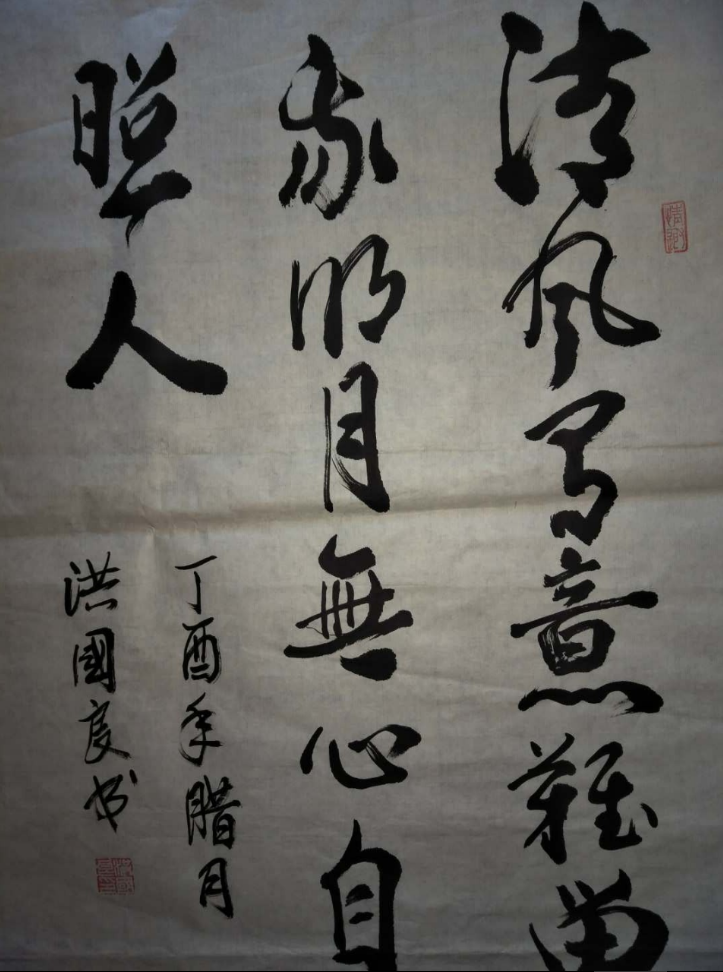 清风有意難留
我明月無心自
照人
丁酉年腊月
洪國良书